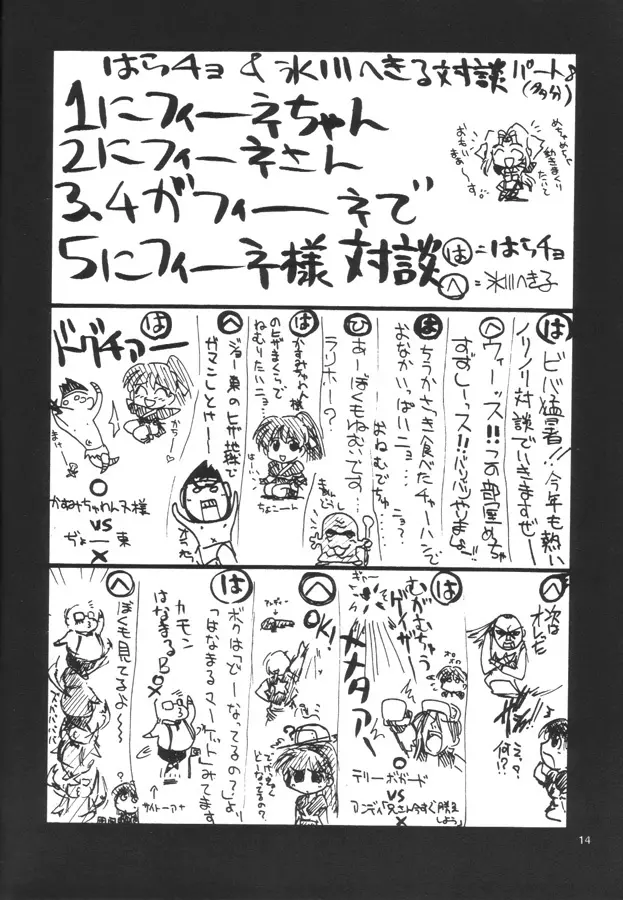 はらチョ & 氷川へきる対談パート8
(多分)
1にフィーネちゃん
2にフィーネさん
3、4がフィーネで
5にフィーネ様対談
めちゃめちゃ
動きまくり
たいて
おもいまぁ〜す。
は=はらチョ
へ=氷川へき子
は ビバ猛暑!!今年も熱い
ノリノリ対談でいきますぜー
へ ウィーッス!!この部屋めちゃ
すずしーッス!!バリバリやりまよ
は ちうかさっき食べたチャーハンで
おなかいっぱいニョ…
おねむでちゅ…ニョ?
ひ あーぼくもねむいです…
ラリホー?
は かすみちゃん様
のヒザまくらで
ねむりたいニョ…
はーい
ちょこーん
へ ジョー東のヒザ地獄で
ガマンしとけやー
は ドグチァー
かち♡
まけ
○
かすみちゃん様
VS
ぢょー東
×
へ 次は
オレだ
えっ?
何!?
は むがむちゅう
ゲイザー
ギャー
メメタァー
○
テリーボガード
VS
アンディ「兄さん今すぐ脱出
しよう」
×
へ OK!
アンディー
は ボクは「どーなってるの?」より
「はなまるマーケット」みてます
カモン
はなまるBOX
↑
サイトーアナ
へ ぼくも見てるよ〜〜
14